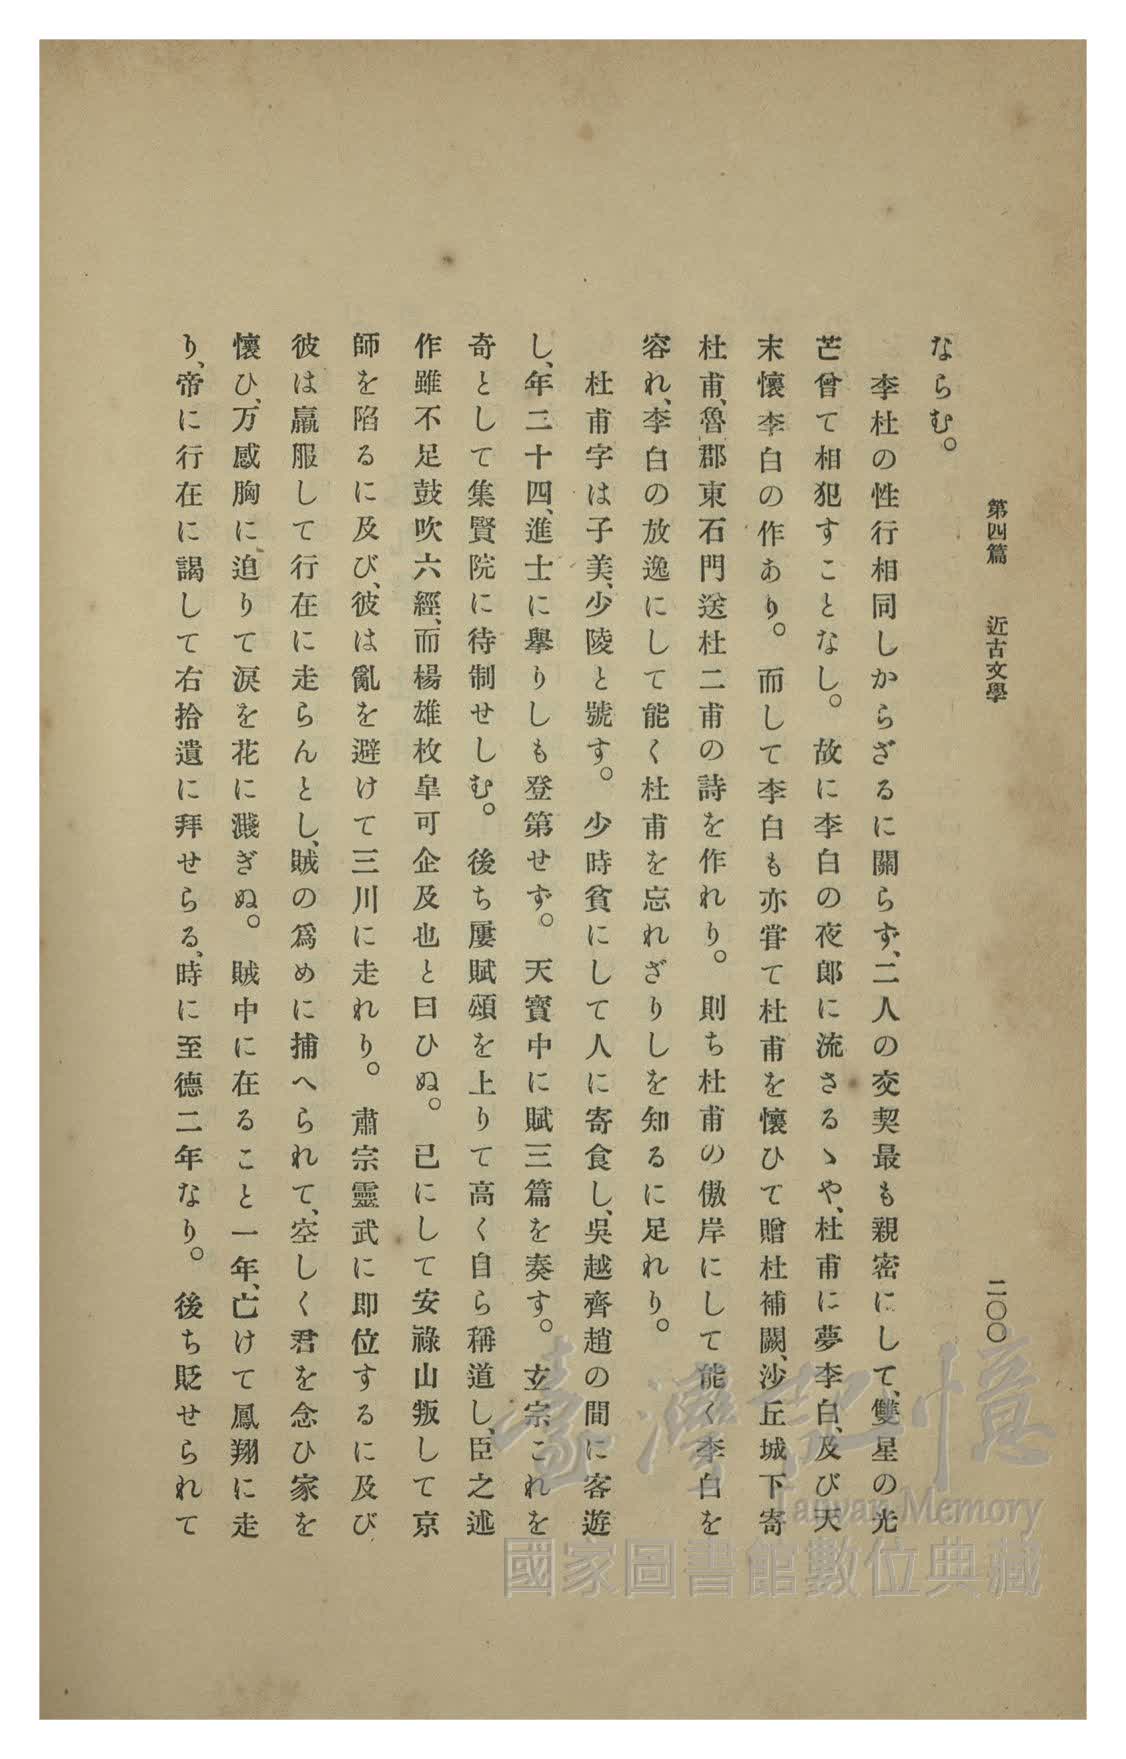 第四篇　近古文學
二〇〇
ならむ。
李杜の性行相同しからざるに關らず、二人の交契最も親密にして、雙星の光
芒曾て相犯すことなし。故に李白の夜郎に流さるゝや、杜甫に夢李白、及び天
末懷李白の作あり。而して李白も亦甞て杜甫を懷ひて贈杜補闕、沙丘城下寄
杜甫、魯郡東石門送杜二甫の詩を作れり。則ち杜甫の傲岸にして能く李白を
容れ、李白の放逸にして能く杜甫を忘れざりしを知るに足れり。
杜甫字は子美、少陵と號す。少時貧にして人に寄食し、吳越齊趙の間に客遊
し、年二十四、進士に擧りしも登第せず。天寳中に賦三篇を奏す。玄宗これを
奇として集賢院に待制せしむ。後ち屢賦頌を上りて高く自ら稱道し、臣之述
作雖不足鼓吹六經、而楊雄枚皐可企及也と曰ひぬ。已にして安祿山叛して京
師を陷るに及び、彼は亂を避けて三川に走れり。肅宗靈武に即位するに及び
彼は羸服して行在に走らんとし、賊の爲めに捕へられて、空しく君を念ひ家を
懷ひ、万感胸に迫りて淚を花に濺ぎぬ。賊中に在ること一年、亡けて鳳翔に走
り、帝に行在に謁して右拾遺に拜せらる、時に至德二年なり。後ち貶せられて
臺灣記憶
Taiwan Memory
國家圖書館數位典藏